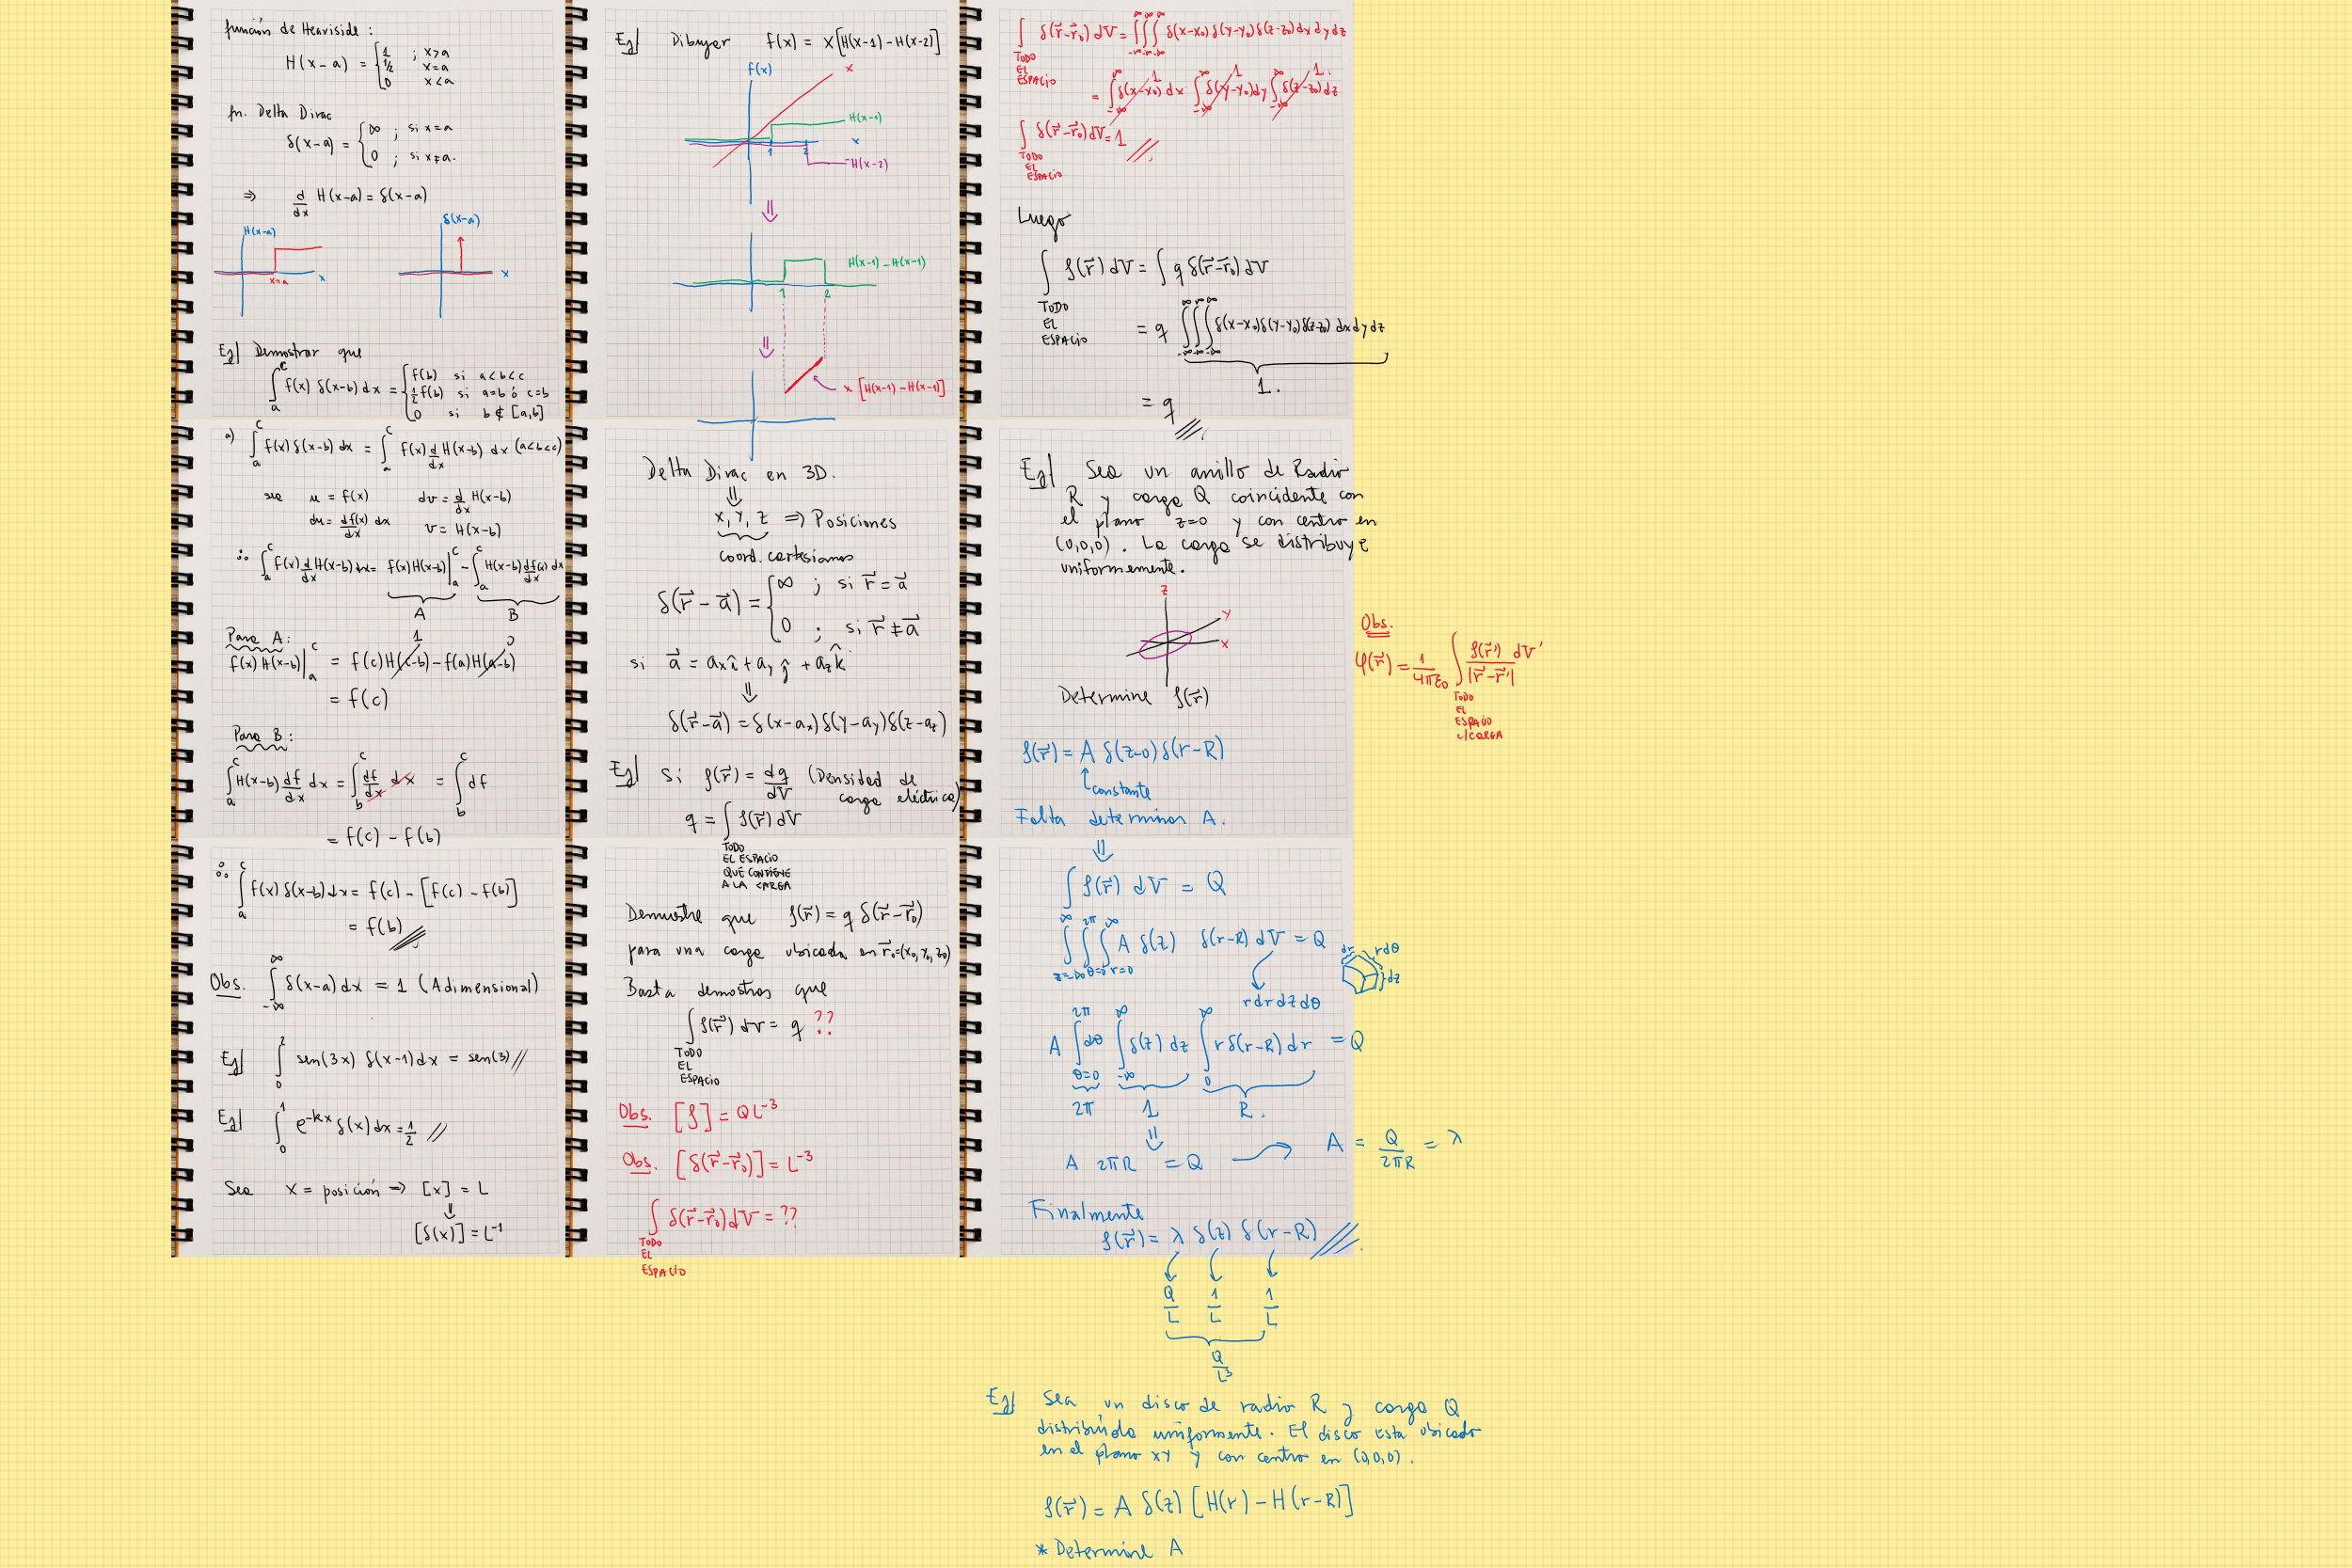 función de Heaviside :
H(x-a) = { 1 ; x>a
1/2 x=a
0 x<a
fn. Delta Dirac
δ(x-a) = { ∞ ; si x=a
0 ; si x≠a.
⇒ d/dx H(x-a) = δ(x-a)
H(x-a)
x=a
x
δ(x-a)
x
Ej/ Demostrar que
∫_a^c f(x) δ(x-b) dx = { f(b) si a<b<c
1/2 f(b) si a=b ó c=b
0 si b∉[a,b]
a) ∫_a^c f(x) δ(x-b) dx = ∫_a^c f(x) d/dx H(x-b) dx (a<b<c)
sea u = f(x) dv = d/dx H(x-b)
du = df(x)/dx dx v = H(x-b)
∴ ∫_a^c f(x) d/dx H(x-b) dx = f(x)H(x-b)|_a^c - ∫_a^c H(x-b) df(x)/dx dx
A B
Para A:
f(x)H(x-b)|_a^c = f(c)H(c-b) - f(a)H(a-b)
1 0
= f(c)
Para B:
∫_a^c H(x-b) df/dx dx = ∫_b^c df/dx dx = ∫_b^c df
= f(c) - f(b)
∴ ∫_a^c f(x) δ(x-b) dx = f(c) - [f(c) - f(b)]
= f(b) //
Obs. ∫_-∞^∞ δ(x-a) dx = 1 (Adimensional)
Ej/ ∫_0^2 sen(3x) δ(x-1) dx = sen(3) //
Ej/ ∫_0^1 e^-kx δ(x) dx = 1/2 //
Sea x = posición ⇒ [x] = L
⇓
[δ(x)] = L^-1
Ej/ Dibujar f(x) = x[H(x-1) - H(x-2)]
f(x)
x
H(x-1)
x
1 2
-H(x-2)
⇓
H(x-1) - H(x-1)
1 2
⇓
x [H(x-1) - H(x-1)]
Delta Dirac en 3D.
⇓
x, y, z ⇒ Posiciones
coord. cartesianas
δ(r⃗ - a⃗) = { ∞ ; si r⃗ = a⃗
0 ; si r⃗ ≠ a⃗
si a⃗ = ax î + ay ĵ + az k̂
⇓
δ(r⃗-a⃗) = δ(x-ax) δ(y-ay) δ(z-az)
Ej/ Si ρ(r⃗) = dq/dV (Densidad de
carga eléctrica)
q = ∫ ρ(r⃗) dV
TODO
EL ESPACIO
QUE CONTIENE
A LA CARGA
Demuestre que ρ(r⃗) = q δ(r⃗-r⃗0)
para una carga ubicada en r⃗0=(x0,y0,z0)
Basta demostrar que
∫ ρ(r⃗) dV = q ??
TODO
EL
ESPACIO
Obs. [ρ] = QL^-3
Obs. [δ(r⃗-r⃗0)] = L^-3
∫ δ(r⃗-r⃗0) dV = ??
TODO
EL
ESPACIO
∫ δ(r⃗-r⃗0) dV = ∫_-∞^∞ ∫_-∞^∞ ∫_-∞^∞ δ(x-x0) δ(y-y0) δ(z-z0) dx dy dz
TODO
EL
ESPACIO
= ∫_-∞^∞ δ(x-x0) dx ∫_-∞^∞ δ(y-y0) dy ∫_-∞^∞ δ(z-z0) dz
1 1 1.
∫ δ(r⃗-r⃗0) dV = 1 //
TODO
EL
ESPACIO
Luego
∫ ρ(r⃗) dV = ∫ q δ(r⃗-r⃗0) dV
TODO
EL
ESPACIO
= q ∫_-∞^∞ ∫_-∞^∞ ∫_-∞^∞ δ(x-x0) δ(y-y0) δ(z-z0) dx dy dz
1.
= q //
Ej/ Sea un anillo de Radio
R y carga Q coincidente con
el plano z=0 y con centro en
(0,0,0). La carga se distribuye
uniformemente.
z
y
x
Determine ρ(r⃗)
Obs.
φ(r⃗) = 1/4πε0 ∫ ρ(r⃗')/|r⃗-r⃗'| dV'
TODO
EL
ESPACIO
c/CARGA
ρ(r⃗) = A δ(z-0) δ(r-R)
constante
Falta determinar A.
⇓
∫ ρ(r⃗) dV = Q
∫_z=-∞^∞ ∫_θ=0^2π ∫_r=0^∞ A δ(z) δ(r-R) dV = Q
r dr dz dθ
dr
rdθ
dz
A ∫_θ=0^2π dθ ∫_-∞^∞ δ(z) dz ∫_0^∞ r δ(r-R) dr = Q
2π 1 R.
⇓
A 2πR = Q → A = Q/2πR = λ
Finalmente
ρ(r⃗) = λ δ(z) δ(r-R) //
Q/L 1/L 1/L
Q/L^3
Ej/ Sea un disco de radio R y carga Q
distribuída uniformente. El disco esta ubicado
en el plano xy y con centro en (0,0,0).
ρ(r⃗) = A δ(z) [H(r) - H(r-R)]
* Determine A